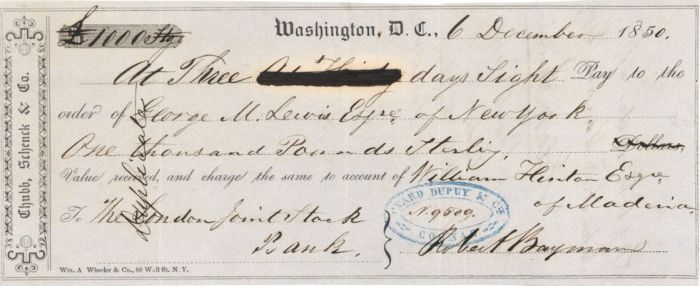 £1000 Stg.
Washington, D. C., 6 December 1850.
At Three days Sight Pay to the
order of George M. Lewis Esqre of New York.
One thousand Pounds Sterling, Dollars,
Value received, and charge the same to account of William Hinton Esqre
of Madeira
To The London Joint Stock
Bank.
Robert Bayman
Chubb, Schenck & Co.
DUPUY & Co
No 9509.
COGNAC
Wm. A Wheeler & Co., 86 Wall St. N. Y.